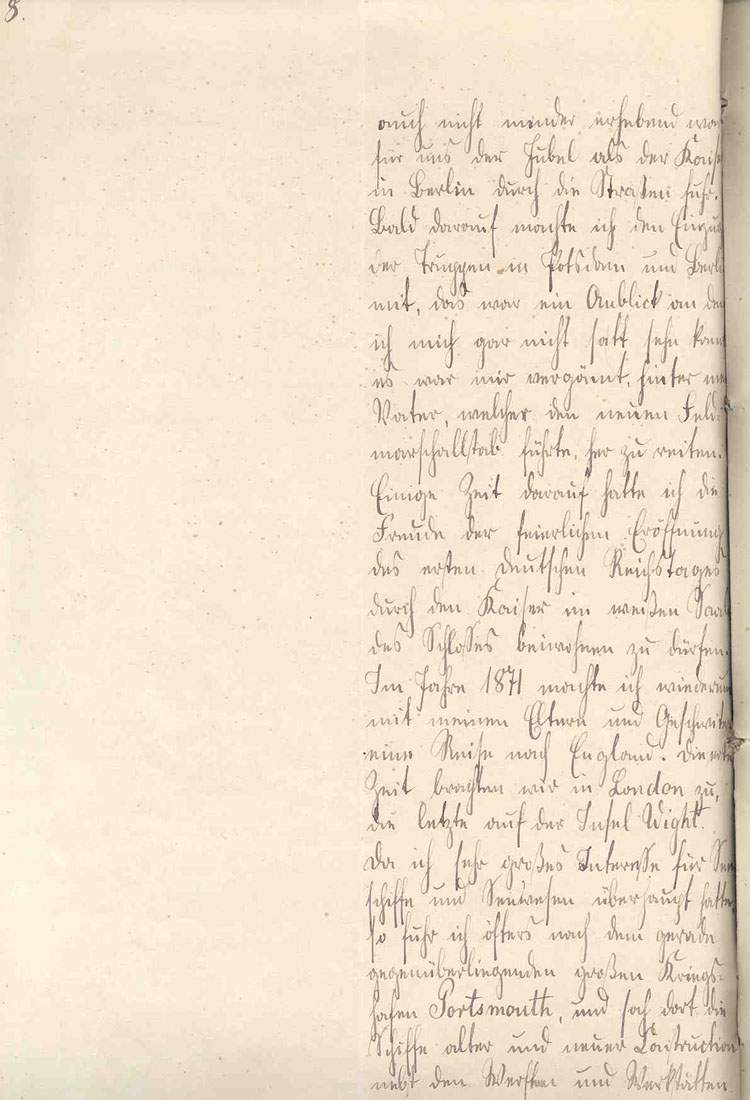 8.
auch nicht minder erhebend war
für uns der Jubel als der Kais
in Berlin durch die Straßen fuhr.
Bald darauf machte ich den Einzug
der Truppen in Potsdam und Berl
mit, das war ein Anblick an dem
ich mich gar nicht satt sehn kon
es war mir vergönnt, hinter me
Vater, welcher den neuen Feld-
marschallstab führte, her zu reiten.
Einige Zeit darauf hatte ich die
Freude der feierlichen Eröffnung
des ersten deutschen Reichstages
durch den Kaiser im weißen Saal
des Schlosses beiwohnen zu dürfen.
Im Jahre 1871 machte ich wiederum
mit meinen Eltern und Geschwister
eine Reise nach England. Die erste
Zeit brachten wir in London zu,
die letzte auf der Insel Wight.
Da ich sehr großes Interesse für See
schiffe und Seewesen überhaupt hatte,
so fuhr ich öfters nach dem gerade
gegenüberliegenden großen Kriegs-
hafen Portsmouth, und sah dort die
Schiffe alter und neuer Construction
nebst den Werften und Werkstätten